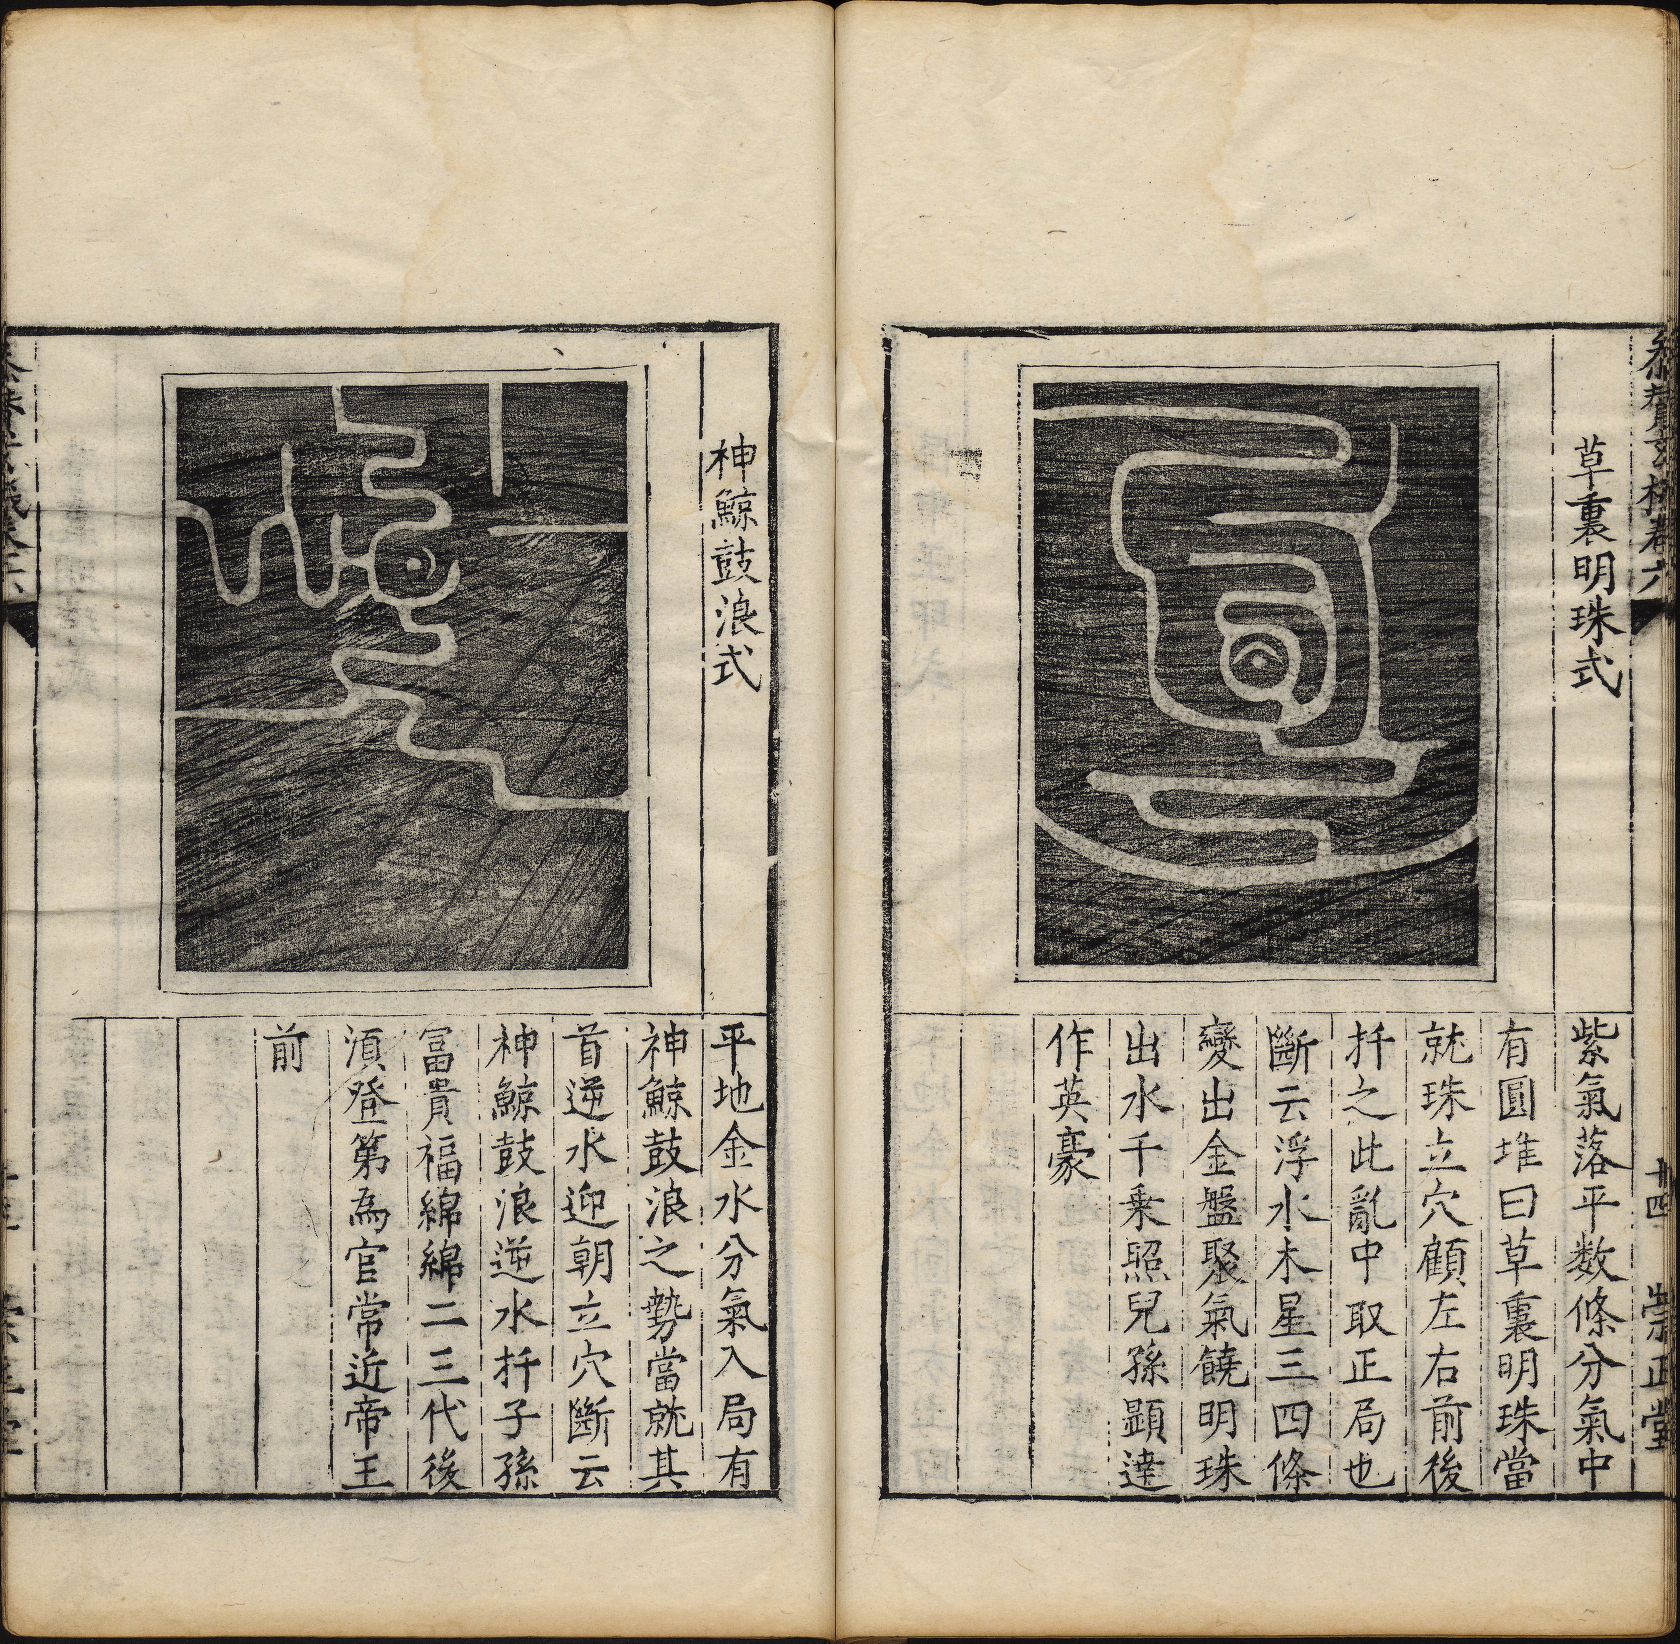 草裏明珠式
紫氣落平数條分氣中
有圓堆曰草裏明珠當
就珠立穴顧左右前後
扦之此亂中取正局也
斷云浮水木星三四條
變出金盤聚氣饒明珠
出水千乗照兒孫顕達
作英豪
卷六
廿四
崇正堂
神鯨鼓浪式
平地金水分氣入局有
神鯨鼓浪之勢當就其
首逆水迎朝立穴斷云
神鯨鼓浪逆水扦子孫
冨貴福綿綿二三代後
湏登第為官常近帝王
前